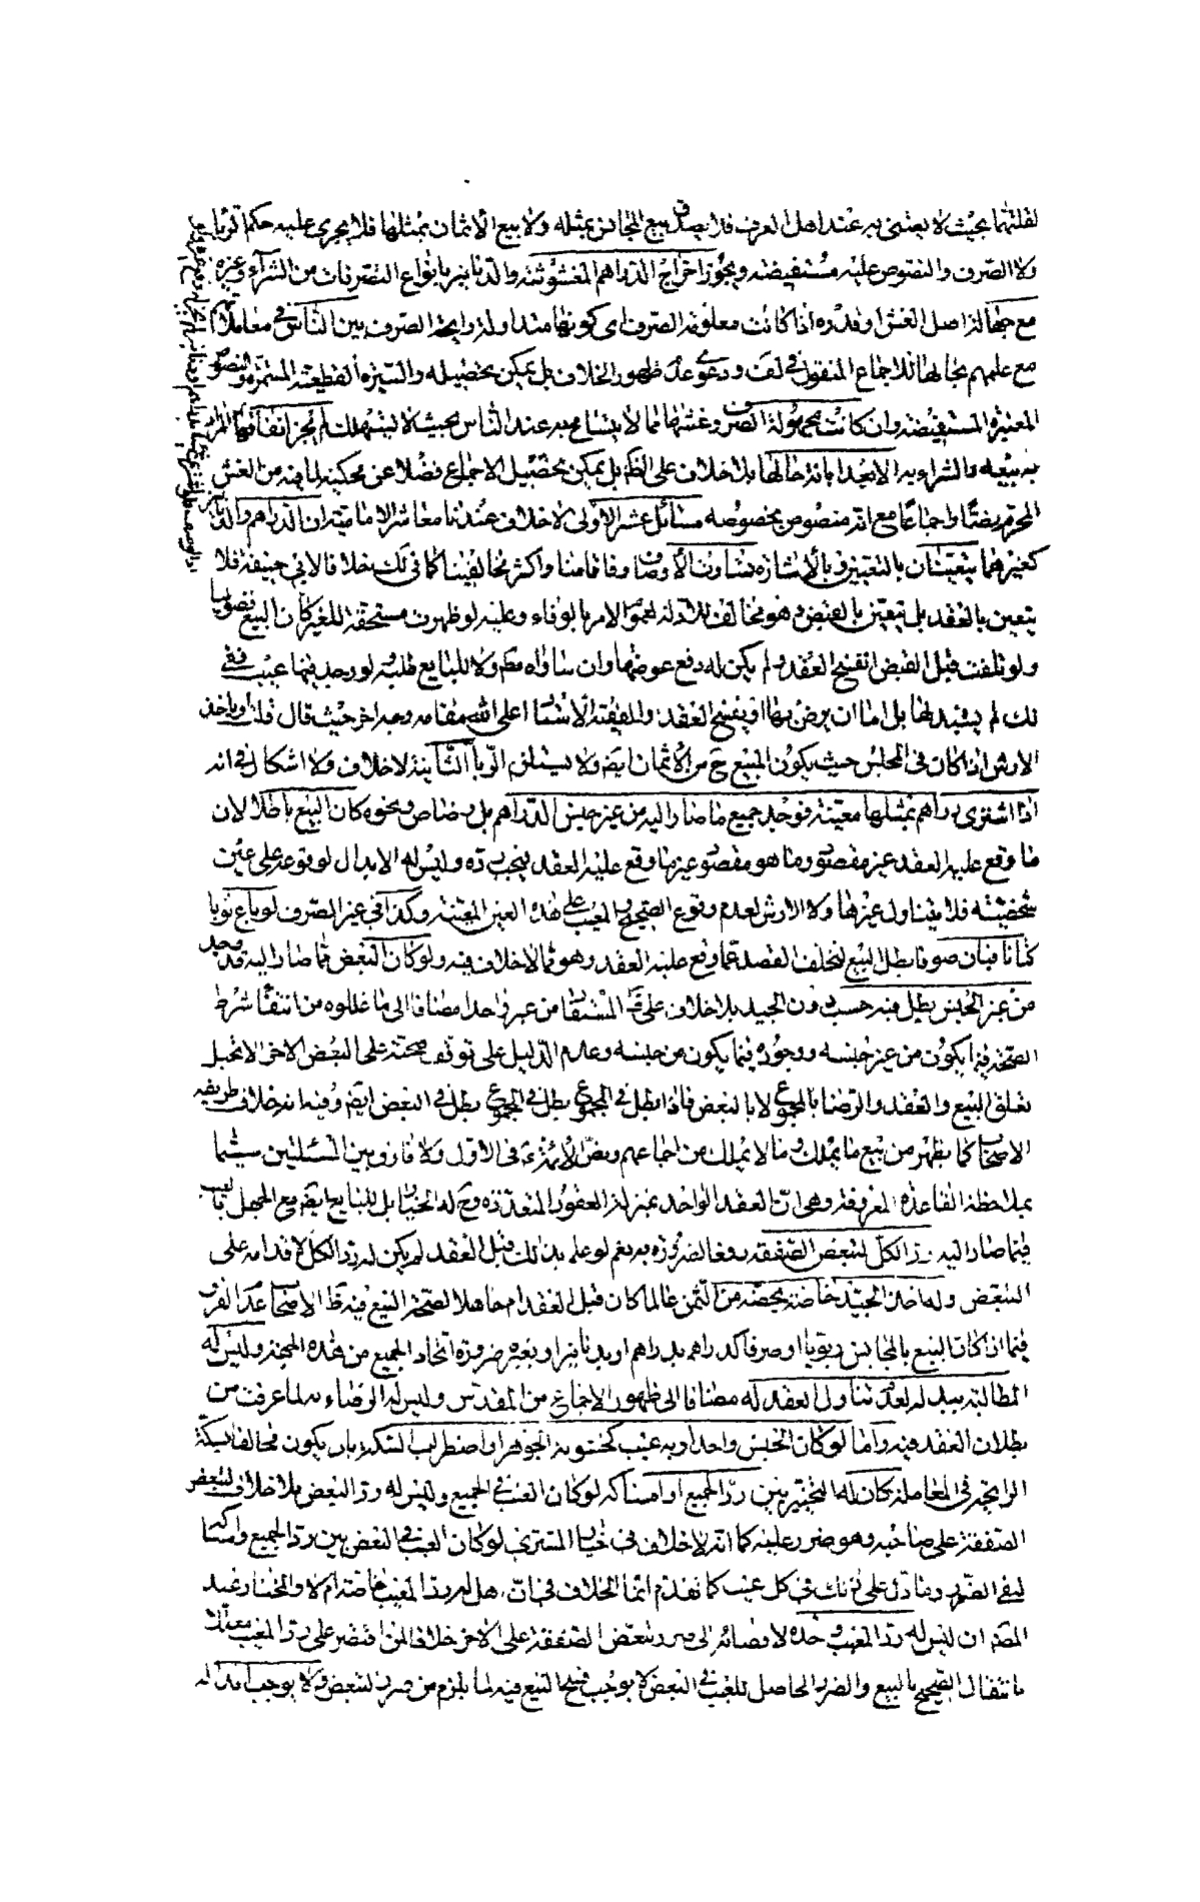 لقلتهما بحيث لا يعتنى به عند اهل العرف فلا يصدق بيع المجانس بمثله ولا بيع الاثمان بمثلها فلا يجرى عليه حكم الربا
ولا الصرف والنصوص عليه مستفيضة ويجوز اخراج الدراهم المغشوشة والدنانير بانواع التصرفات من الشراء وغيره
مع جهالة اصل الغش او قدره اذا كانت معلومة الصرف اى كونها متداولة رايجة الصرف بين الناس فى معاملاتهم
مع علمهم بحالها للاجماع المنقول فى لف ودعوى عدم ظهور الخلاف بل يمكن تحصيله والسيرة القطعية المستمرة والنصوص
المعتبرة المستفيضة وان كانت مجهولة الصرف وغشها مما لا يتسامح به عند الناس بحيث لا يستهلك لم يجز انفاقها
به بيعا والشراء به الا بعد ابانة حالها بلا خلاف على الظ بل يمكن تحصيل الاجماع فضلا عن محكيه لما فيه من الغش
المحرم نصا واجماعا مع انه منصوص بخصوصه مسائل عشر الاولى لا خلاف عندنا معاشر الامامية ان الدراهم والدنانير
كغيرهما يتعينان بالتعيين بالاشارة الاوصاف وفاقا منا واكثر مخالفينا كما فى لك خلافا لابى حنيفة فلا
يتعين بالعقد بل تتعين بالقبض وهو مخالف للادلة لعموم الامر بالوفاء وعليه لو ظهرت مستحقة للغير كان البيع
ولو تلفت قبل القبض انفسخ العقد ولم يكن له دفع عوضها وان ساواه مطم ولا للبايع طلبه ولو وجد فيها عيب ففى
لك لم يستبدلها بل اما ان يرضى بها او يفسخ العقد اعلى الله مقامه وجه اخر حيث قال قلت او ياخذ
الارش اذا كان فى المجلس حيث يكون المبيع ح من الاثمان ايضم ولا يستلزم الربا الثانية لا خلاف ولا اشكال فى انه
اذا اشترى دراهم بمثلها معينة فوجد جميع ما صار اليه من غير جنس الدراهم بل رصاص ونحوه كان البيع باطلا لان
ما وقع عليه العقد غير مقصود وما هو مقصود غير ما وقع عليه العقد فيجب رده وليس له الابدال لوقوعه على عين
شخصية فلا يتناول غيرها ولا الارش لعدم وقوع الصحيح والمعيب على هذه العين المعينة وكذا فى غير الصرف لو باع ثوبا
كتانا فبان صوفا بطل البيع لتخلف القصد عما وقع عليه العقد وهو مما لا خلاف فيه ولو كان البعض مما صار اليه قد وجد
من غير الجنس بطل فيه حسب دون الجيد بلا خلاف على من غير واحد مضافا الى ما عللوه من انتفاء شرط
الصحة فيما يكون من غير جنسه ووجوده فيما يكون من جنسه وعدم الدليل على توقف صحته على البعض الاخر الا تخيل
تعلق البيع والعقد والرضا بالمجموع لا بالبعض فاذا بطل فى المجموع بطل فى البعض ايضم وفيه انه خلاف طريقة
الاصحاب كما يظهر من بيع ما يملك وما لا يملك من اجماعهم ونص الائمة ع فى الاول ولا فارق بين المسئلتين سيما
بملاحظة القاعدة المعروفة وهى ان العقد الواحد بمنزلة العقود المتعددة وح له الخيار بل للبايع ايضم مع الجهل بالعيب
فيما صار اليه رد الكل لتبعض الصفقة دفعا لضرره به نعم لو علم بذلك قبل العقد لم يكن له رد الكل لاقدامه على
التبعض وله اخذ الجيد خاصة بحصته من الثمن عالما كان قبل العقد ام جاهلا لصحة البيع فيه الاصحاب عدم الفرق
فيما اذا كان البيع بالمجانس ربويا او صرفا كدراهم بدراهم او بدنانير او بغيره ضرورة اتحاد الجميع من هذه الجهة وليس له
المطالبة ببدله لعدم تناول العقد له مضافا الى ظهور الاجماع من المقدس وليس له الرضاء به لما عرفت من
بطلان العقد فيه واما لو كان الجنس واحدا وبه عيب كخشونة الجوهر او اضطراب السكة بان يكون مخالفا لسكة
الرايجة فى المعاملة كان له التخيير بين رد الجميع او امساكه لو كان العيب فى الجميع وليس له رد البعض بلا خلاف لتبعض
الصفقة على صاحبه وهو ضرر عليه كما انه لا خلاف فى خيار المشترى لو كان العيب فى البعض بين رد الجميع وامساكه
لنفى الضرر وما دل على ذلك فى كل عيب كما تقدم انما الخلاف فى ان هل له رد المعيب خاصة ام لا والمختار عند
المصم ان ليس له رد المعيب وحده لافضائه الى ضرر تبعض الصفقة على الاخر خلافا لمن اقتصر على رد المعيب معللا
بانتقال الصحيح بالبيع والضرر الحاصل للعيب فى البعض لا يوجب فسخ البيع فيه لما يلزم من ضرر التبعض ولا يوجب ابداله